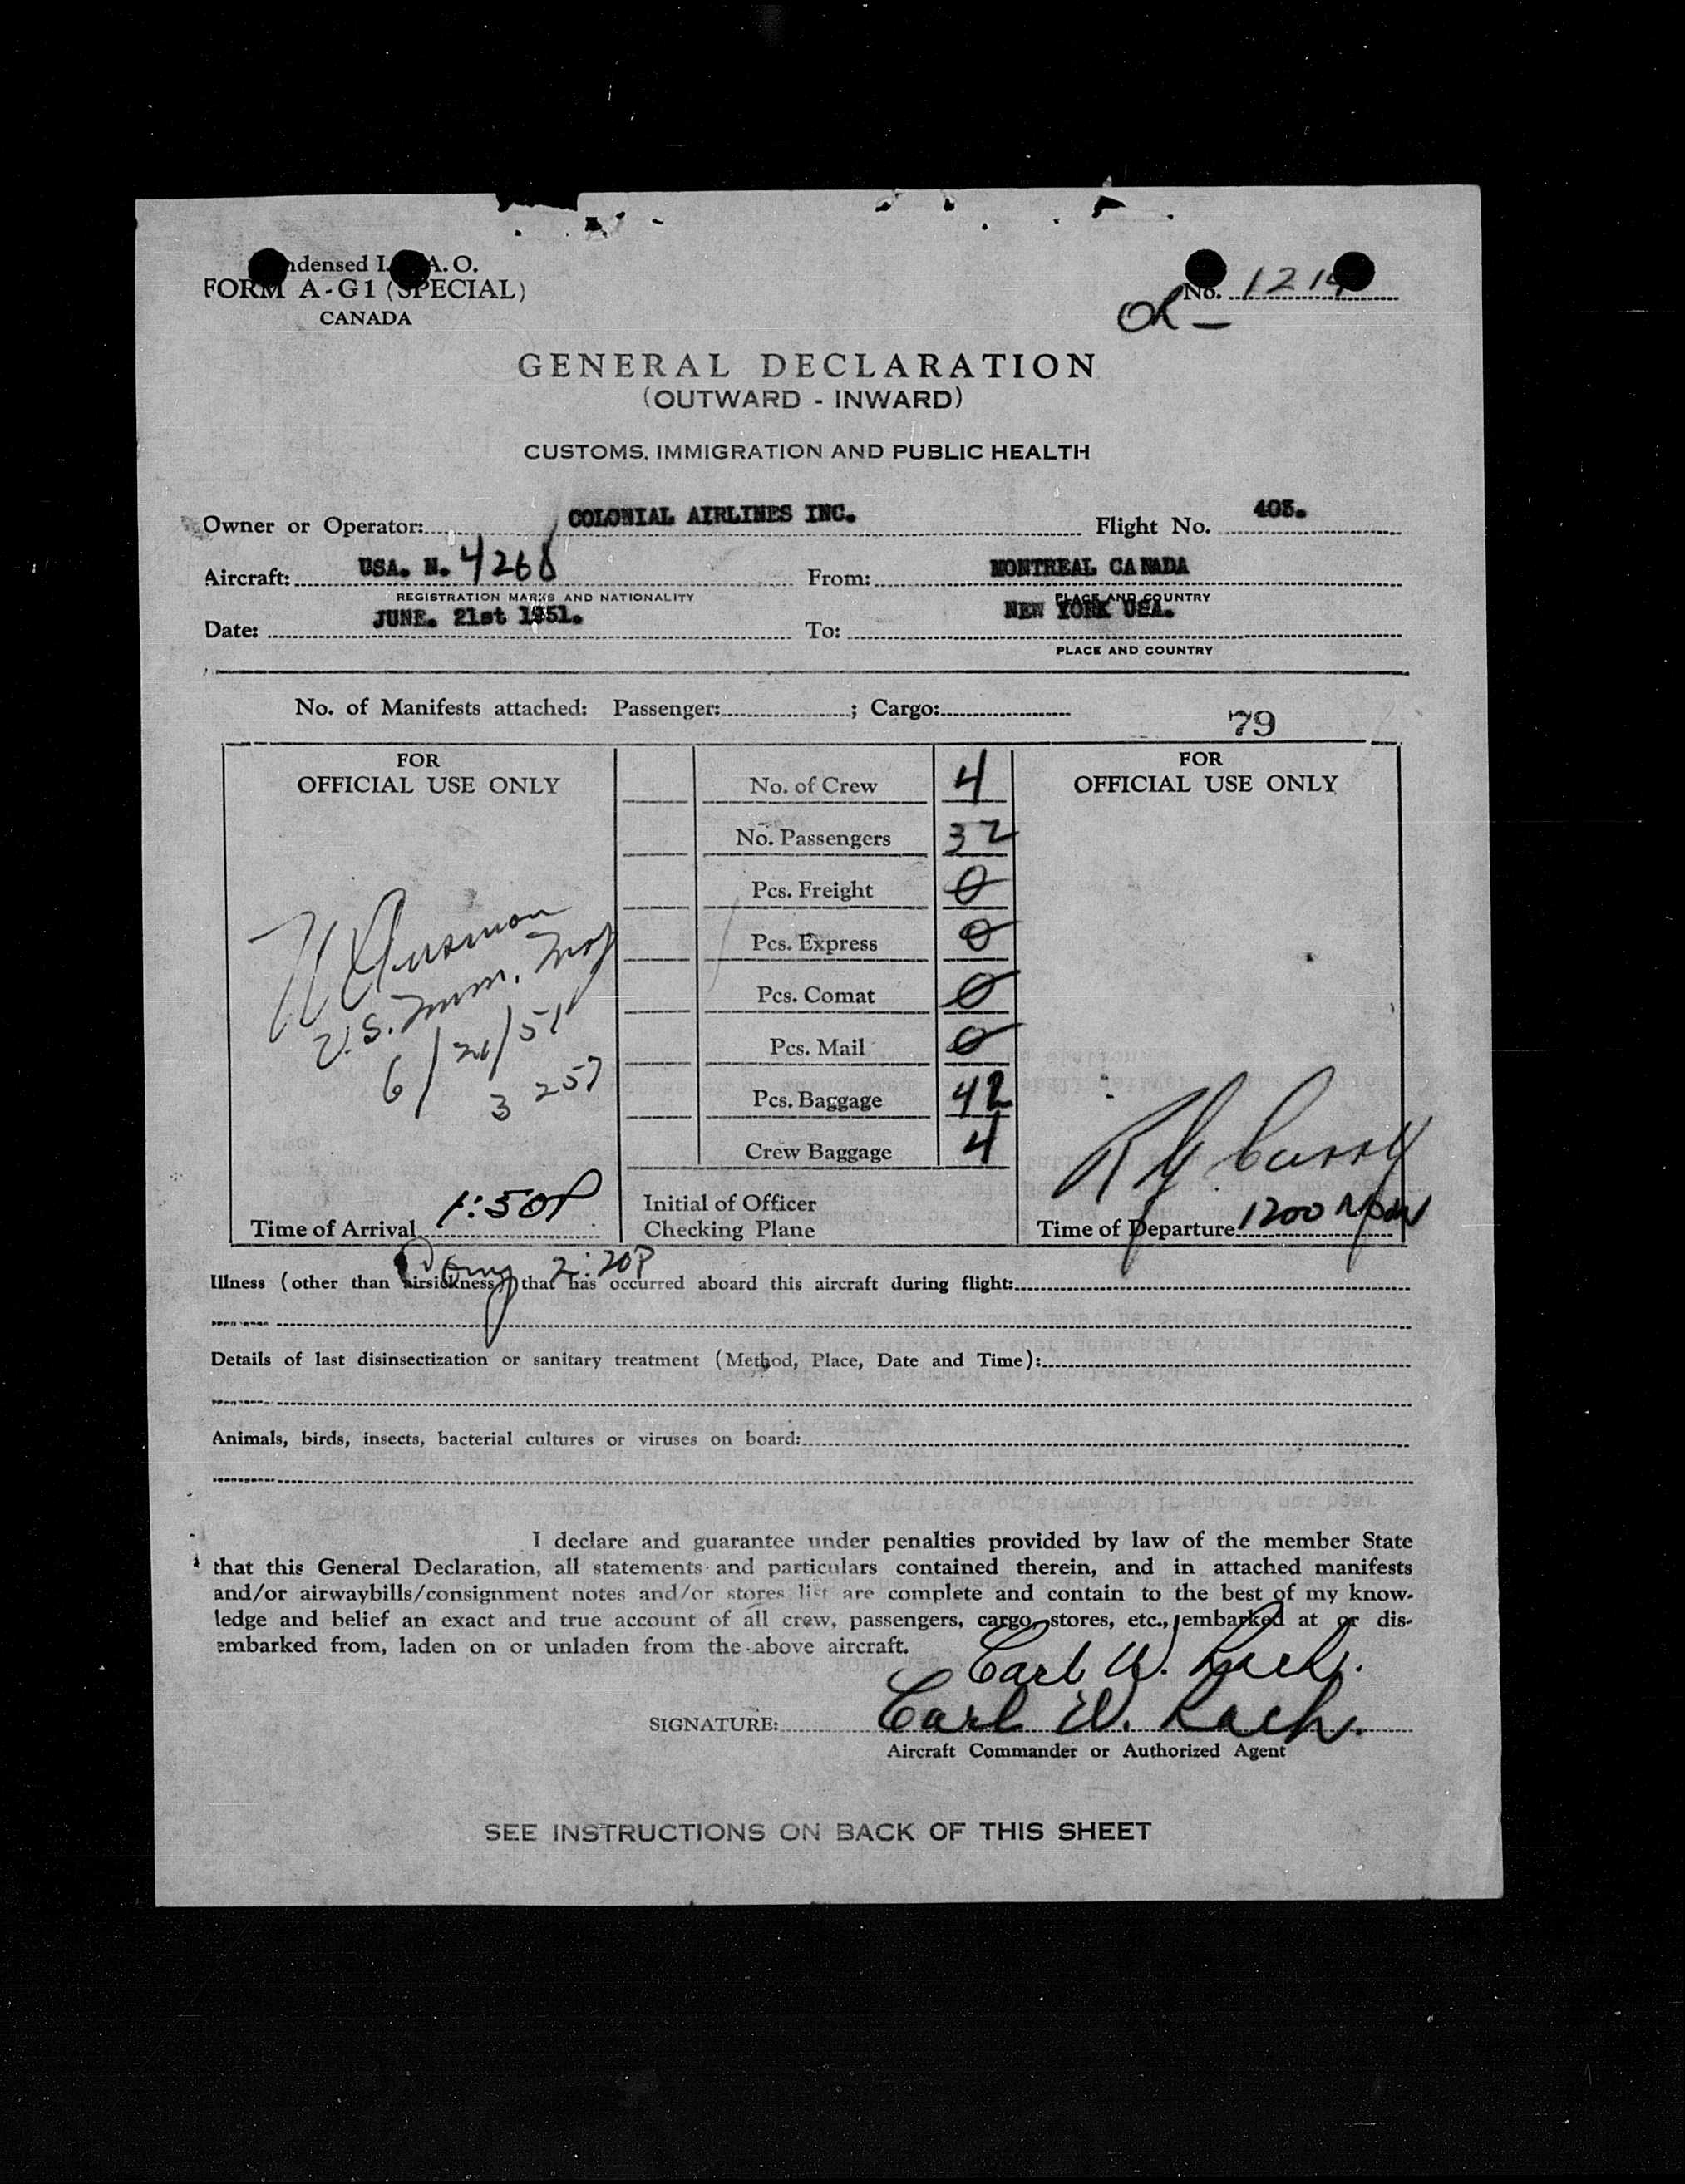 ndensed I. A. O.
FORM A-G1 (SPECIAL)
CANADA
No. 1214
OK –
GENERAL DECLARATION
(OUTWARD - INWARD)
CUSTOMS, IMMIGRATION AND PUBLIC HEALTH
Owner or Operator: COLONIAL AIRLINES INC. Flight No. 403.
Aircraft: USA. N. 4268 From: MONTREAL CANADA
REGISTRATION MARKS AND NATIONALITY PLACE AND COUNTRY
Date: JUNE. 21st 1951. To: NEW YORK USA.
PLACE AND COUNTRY
No. of Manifests attached: Passenger: ; Cargo:
79
FOR
OFFICIAL USE ONLY
No. of Crew 4
No. Passengers 32
Pcs. Freight 0
Pcs. Express 0
Pcs. Comat 0
Pcs. Mail 0
Pcs. Baggage 42
Crew Baggage 4
FOR
OFFICIAL USE ONLY
U.S. Imm.
6/21/51
3 257
Time of Arrival 1:50P
Initial of Officer
Checking Plane
Time of Departure 1200 Noon
2:20P
Illness (other than airsickness) that has occurred aboard this aircraft during flight:
Details of last disinsectization or sanitary treatment (Method, Place, Date and Time):
Animals, birds, insects, bacterial cultures or viruses on board:
I declare and guarantee under penalties provided by law of the member State
that this General Declaration, all statements and particulars contained therein, and in attached manifests
and/or airwaybills/consignment notes and/or stores list are complete and contain to the best of my know-
ledge and belief an exact and true account of all crew, passengers, cargo, stores, etc., embarked at or dis-
embarked from, laden on or unladen from the above aircraft.
Carl W.
SIGNATURE: Carl W.
Aircraft Commander or Authorized Agent
SEE INSTRUCTIONS ON BACK OF THIS SHEET